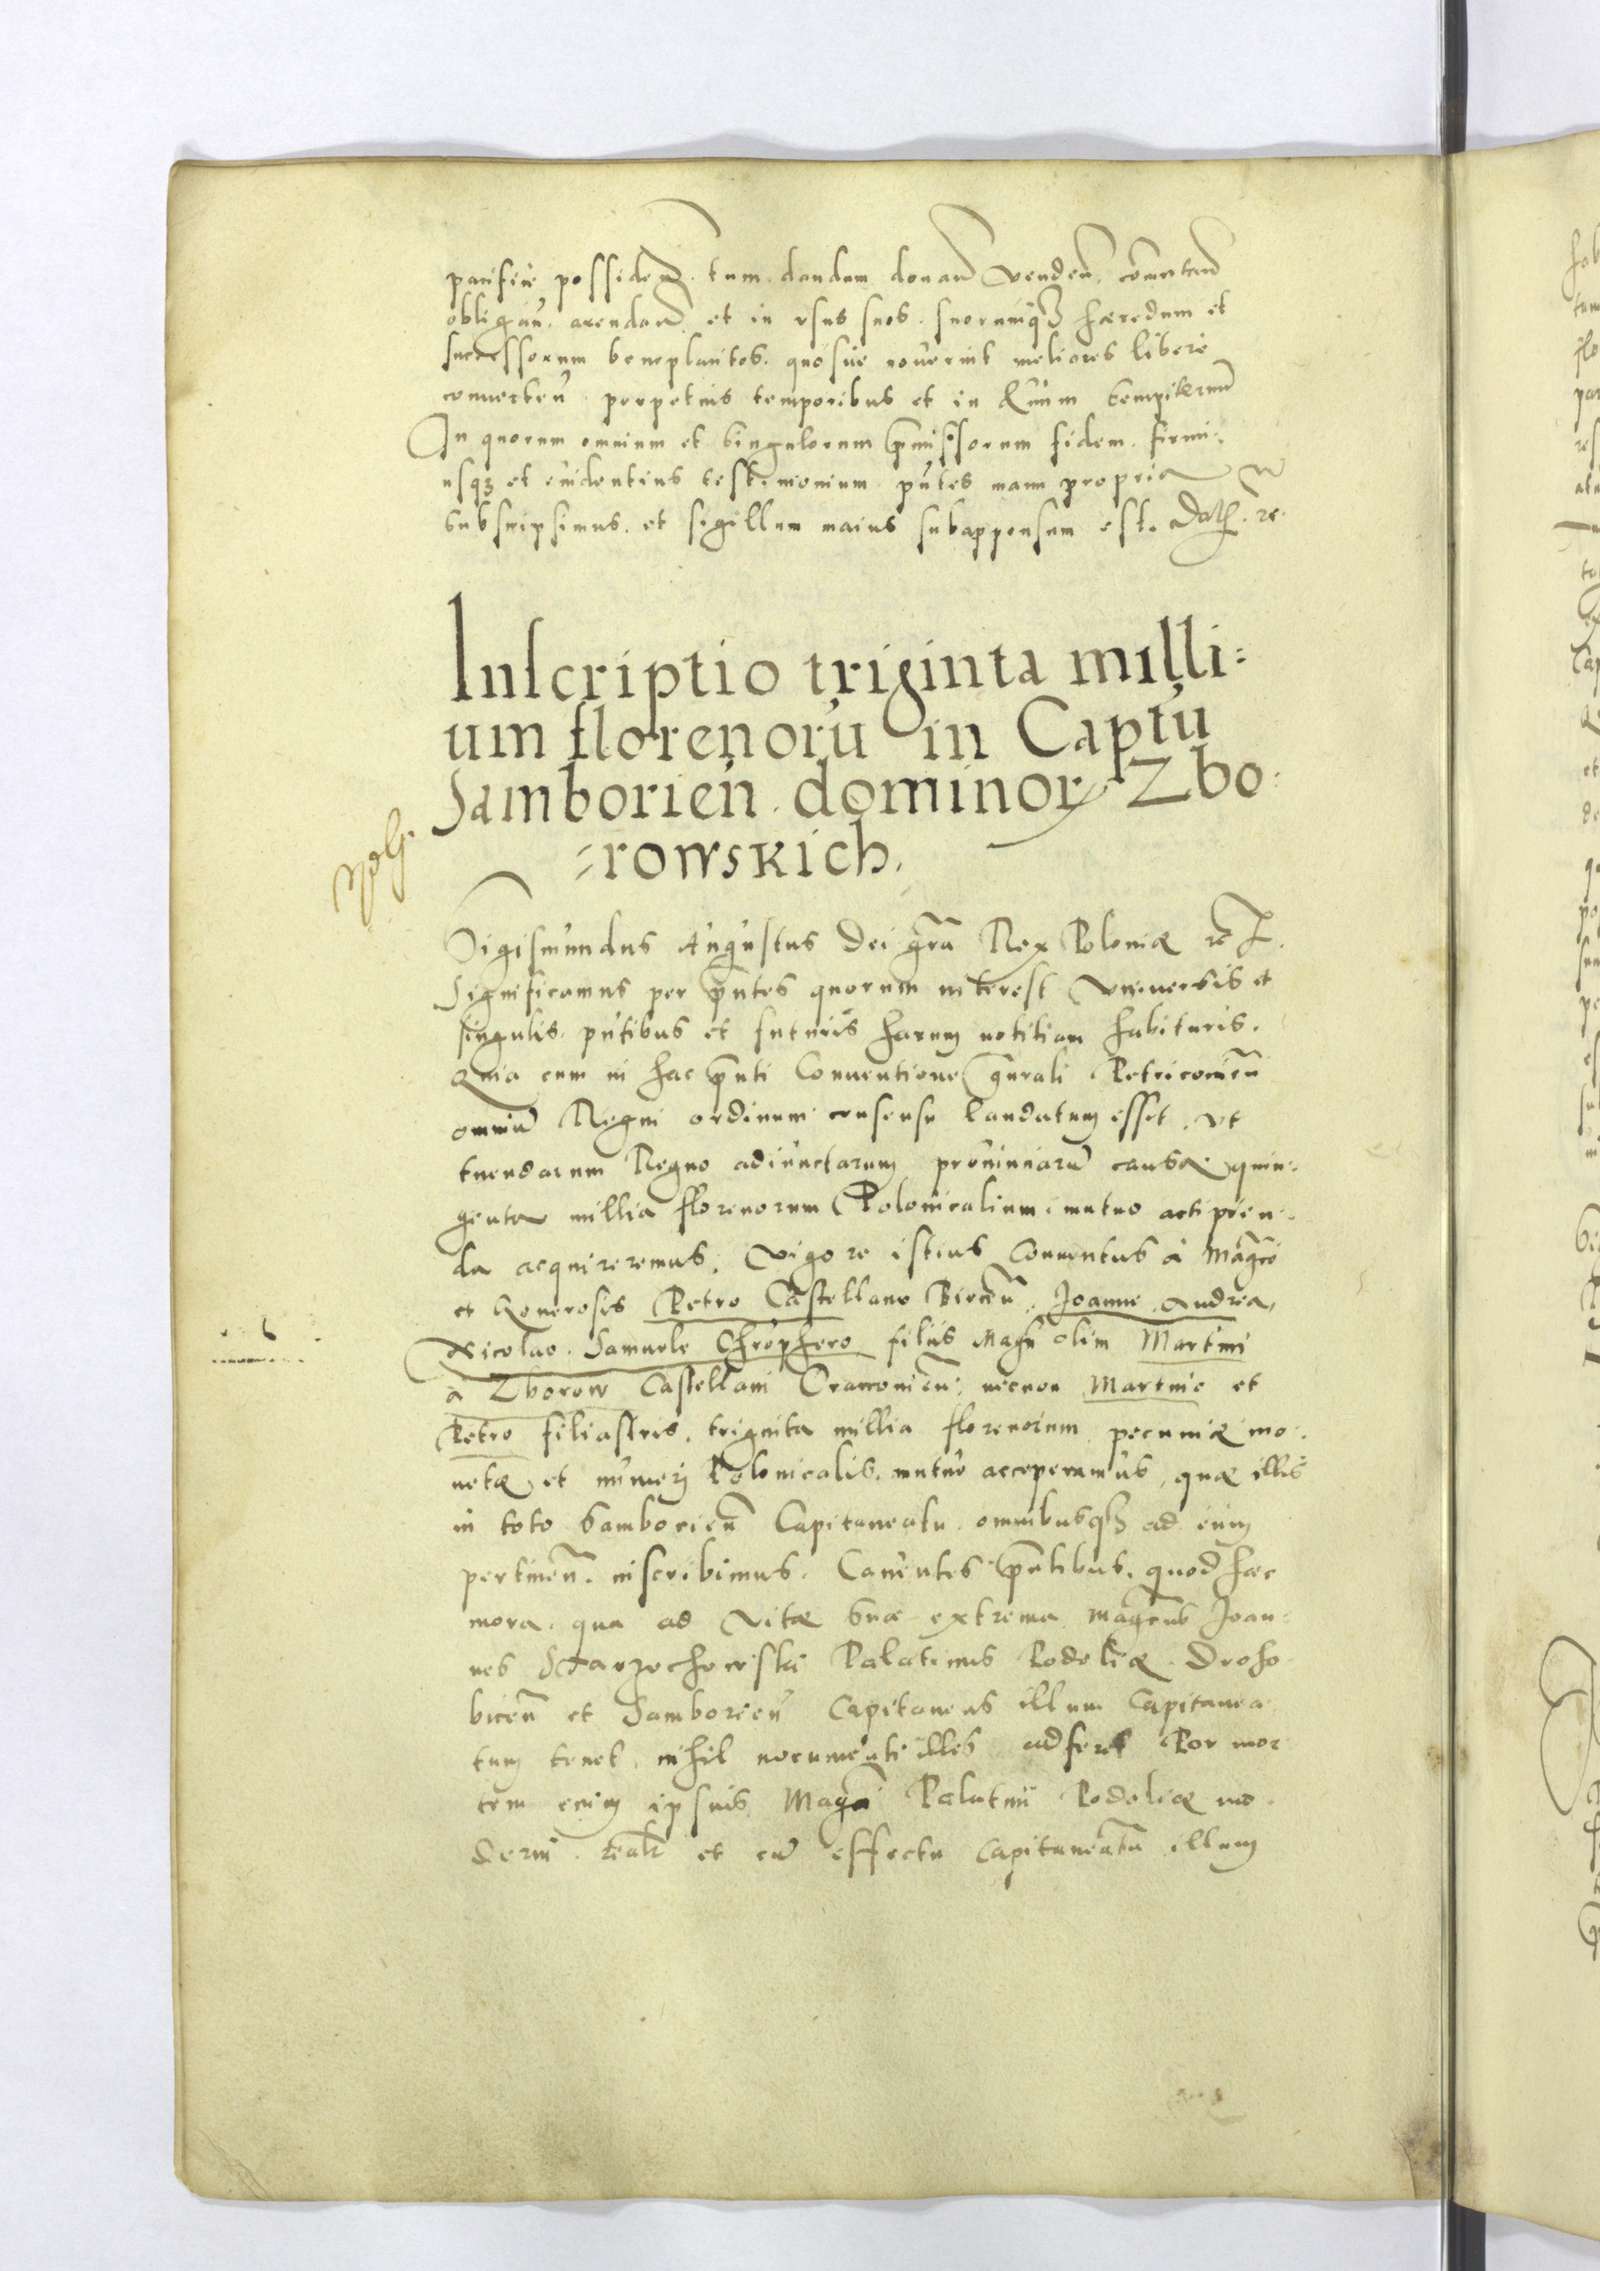 pacifice possiden. tum. dandum donan venden. comutan
obligan. arendan. et in usus suos. suorumq3 haeredum et
successorum beneplacitos. quo sue noverint meliores libere
converten. perpetuis temporibus et in aevum sempiternum
In quorum omnium et singulorum pmissorum fidem. firmi:
usq3 et evidentius testimonium. pntes manu propria
subscripsimus. et sigillum maius subappensum est. Dat. rc.
Inscriptio triginta milli:
um florenoru in Captu
Samborien. dominor Zbo:
=rowskich.
Sigismundus Augustus Dei gra Rex Poloniæ rc
Significamus per pntes quorum interest universis et
singulis. pntibus et futuris harum notitiam habituris.
Quia cum in hac pnti Conventione gnrali Petricovien
omniu Regni ordinum consensu laudatum esset. ut
tuendarum Regno adiunctarum provinciaru causa quin:
genta millia florenorum Polonicalium. mutuo accipien:
da acquireremus. vigore istius Conventus à Magco
et Generosis Petro Castellano Biecen. Joanne. Andrea,
Nicolao. Samuele Chrophero filiis Magci olim Martini
a Zborow Castellani Cracovien. necnon Martino et
Petro filiastris. triginta millia florenorum pecuniæ mo:
netæ et numeri Polonicalis. mutuo acceperamus, quæ illis
in toto Samborien Capitaneatu. omnibusq3 ad eum
pertinen. inscribimus. Caventes pntibus. quod hæc
mora. qua ad vitæ suæ extrema Magcus Joan:
nes Starzechowski Palatinus Podoliæ. Droho
bicen et Samborien Capitaneus illum Capitanea
tum tenet. nihil nocumenti illis adferet Por mor
tem enim ipsius Magci Palatini Podoliæ mo
derni. realr et cu effectu Capitaneatum illum